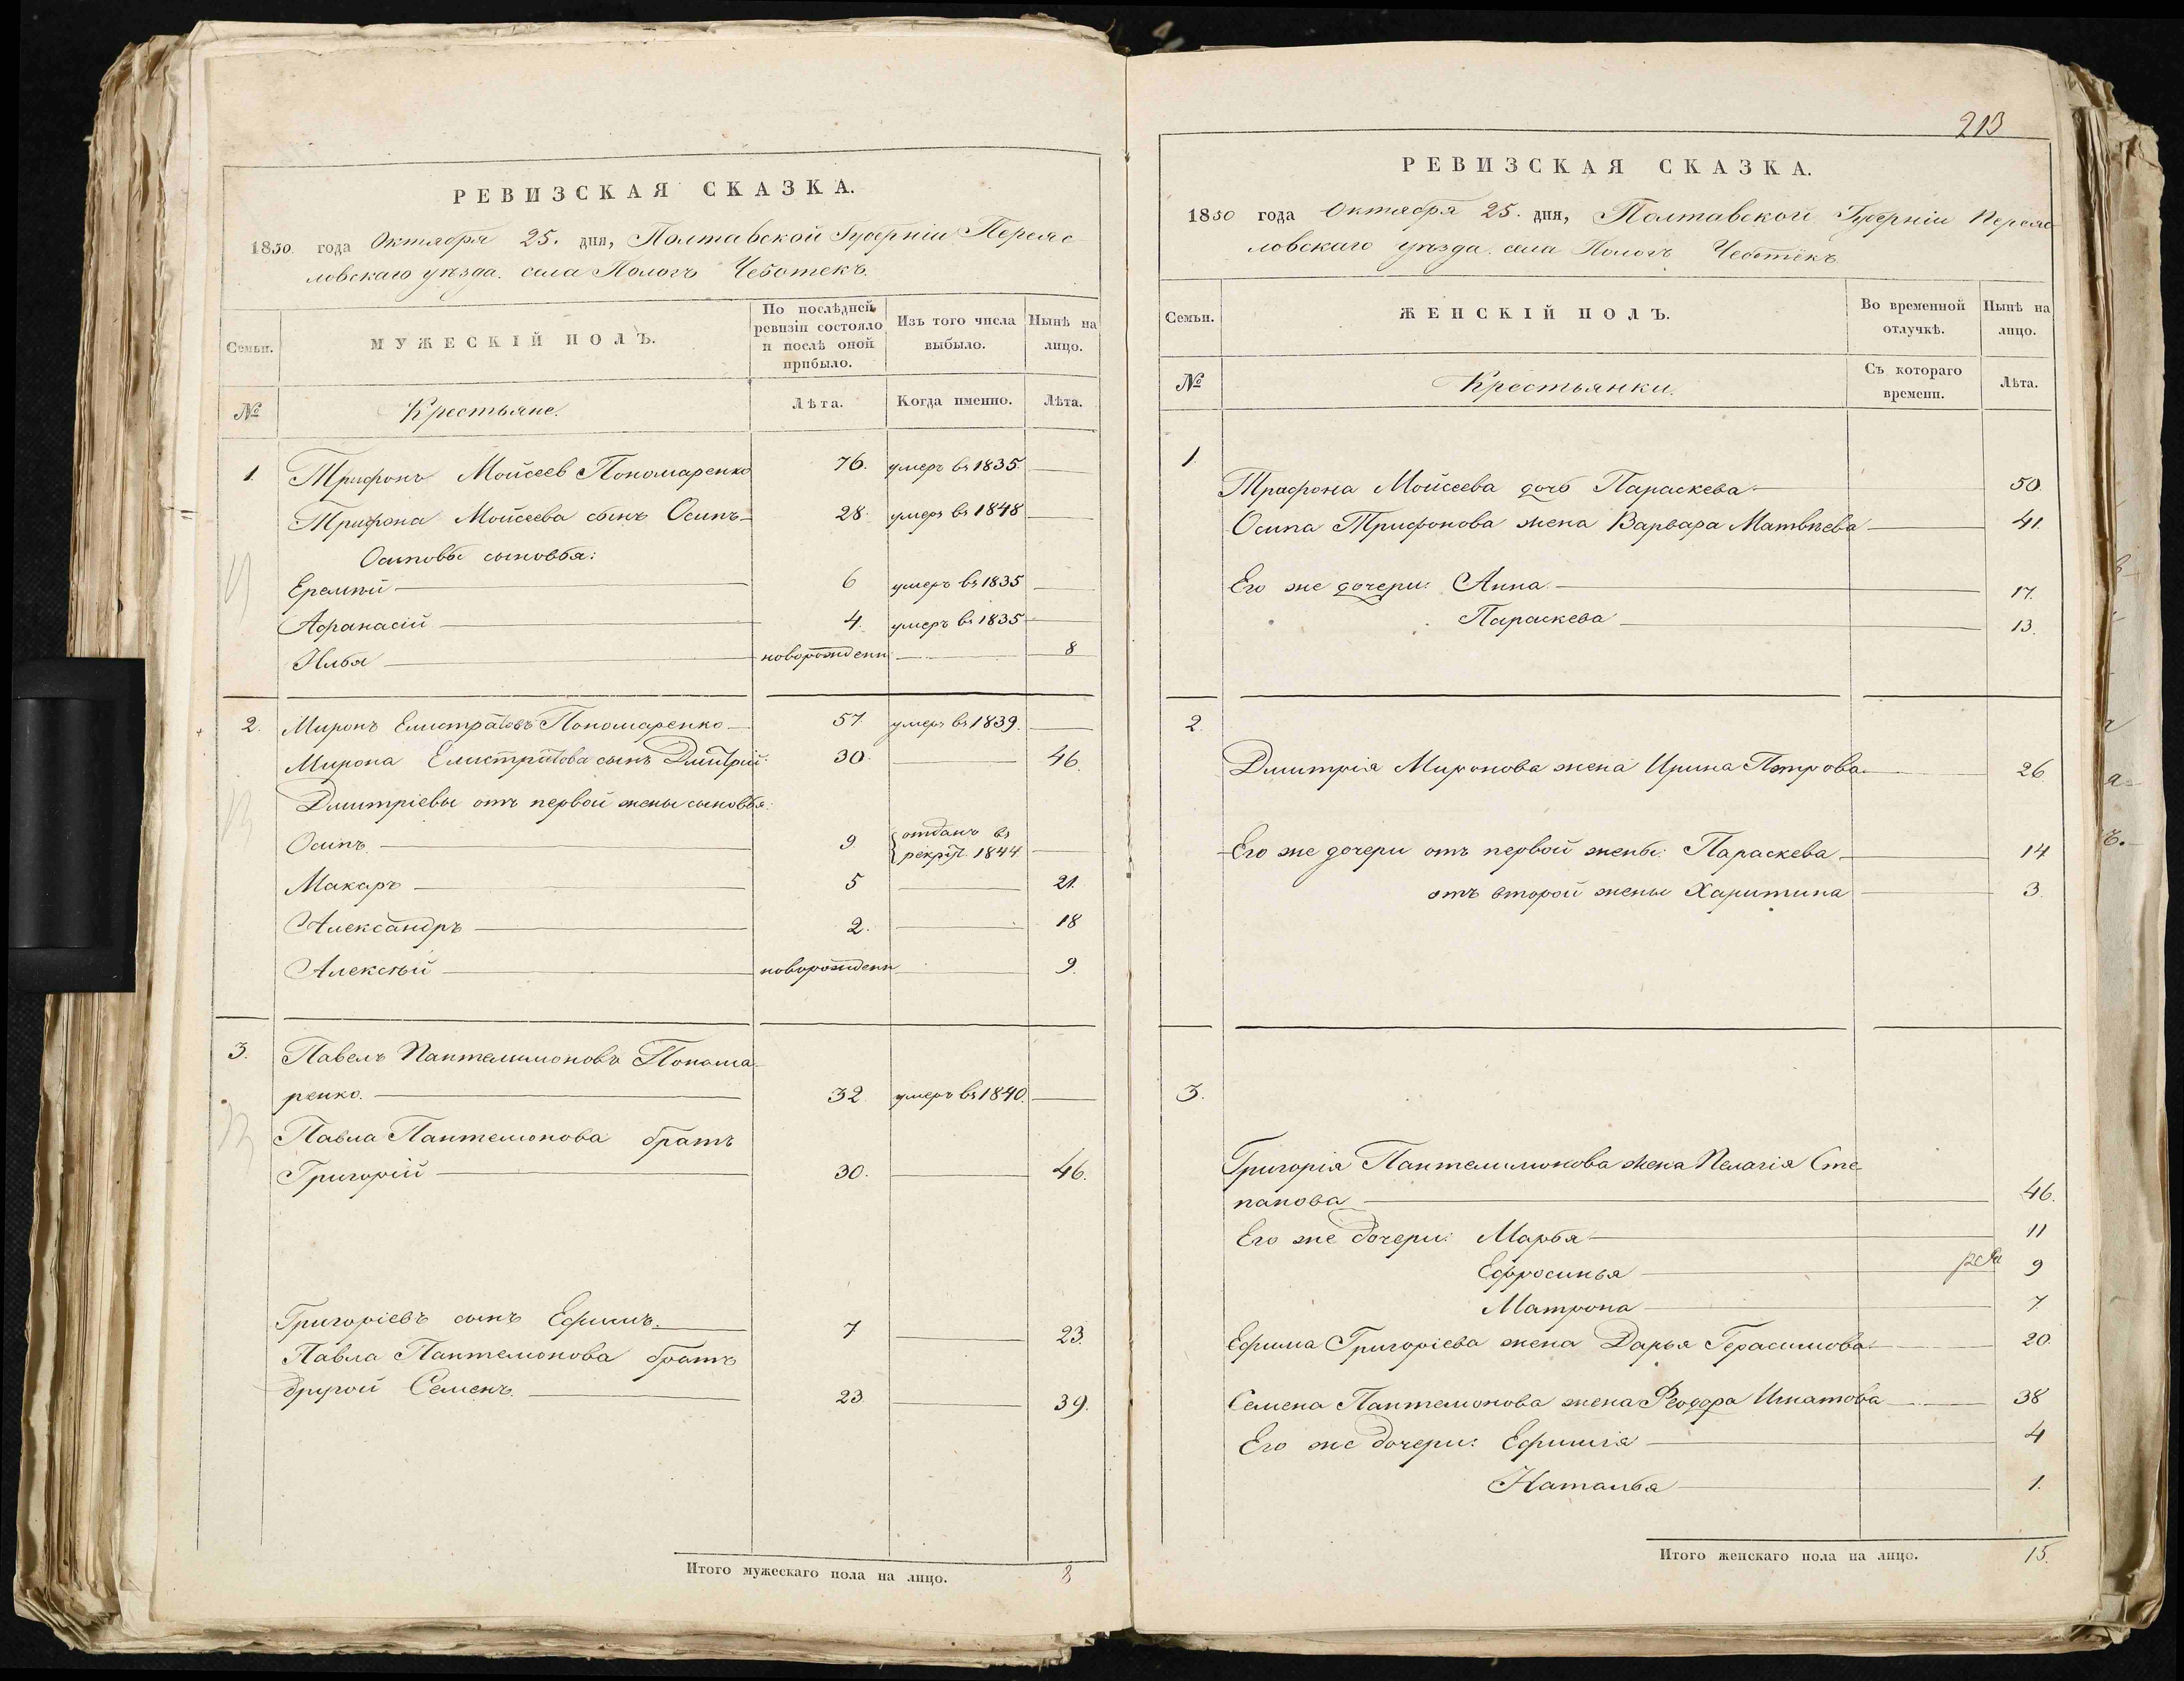 РЕВИЗСКАЯ СКАЗКА.
1850 года Октября 25. дня, Полтавской Губерніи Переяс
ловскаго уѣзда. села Пологъ Чеботекъ.
Семьи.
МУЖЕСКІЙ ПОЛЪ.
По послѣдней ревизіи состояло и послѣ оной прибыло.
Изъ того числа выбыло.
Нынѣ на лицо.
№ Крестьяне. Лѣта. Когда именно. Лѣта.
1. Трифонъ Мойсеев Пономаренко 76. умеръ въ 1835.
Трифона Мойсеева сынъ Осипъ 28. умеръ въ 1848
Осиповы сыновья:
Еремѣй 6 умеръ въ 1835
Афанасій 4. умеръ въ 1835
Илья новорожденн 8
2. Миронъ Елистратовъ Пономаренко 57. умеръ въ 1839.
Мирона Елистратова сынъ Дмитрій 30. 46.
Дмитріевы отъ первой жены сыновья:
Осипъ 9 отданъ въ
рекрут. 1844
Макаръ 5 21.
Александръ 2. 18
Алексѣй новорожденн 9.
3. Павелъ Пантелимоновъ Понома
ренко. 32. умеръ въ 1840.
Павла Пантелимонова братъ
Григорій 30. 46.
Григоріевъ сынъ Ефимъ. 7 23.
Павла Пантелимонова братъ
другой Семенъ. 23 39.
Итого мужескаго пола на лицо. 8
213
РЕВИЗСКАЯ СКАЗКА.
1850 года Октября 25. дня, Полтавской Губерніи Переяс
ловскаго уѣзда. села Пологъ Чеботекъ
Семьи.
ЖЕНСКІЙ ПОЛЪ.
Во временной отлучкѣ.
Нынѣ на лицо.
№ Крестьянки. Съ котораго времени. Лѣта.
1.
Трифона Мойсеева дочь Параскева 50.
Осипа Трифонова жена Варвара Матвѣева 41.
Его же дочери: Анна 17.
Параскева 13.
2.
Дмитрія Миронова жена Ирина Петрова 26
Его же дочери отъ первой жены: Параскева 14
отъ второй жены Харитина 3.
3.
Григорія Пантелимонова жена Пелагія Сте
панова 46.
Его же дочери: Марья 11
Ефросинья 9
Матрона 7
Ефима Григоріева жена Дарья Герасимова 20.
Семена Пантелимонова жена Феодора Игнатова 38
Его же дочери: Ефимія 4
Наталья 1.
Итого женскаго пола на лицо. 15.